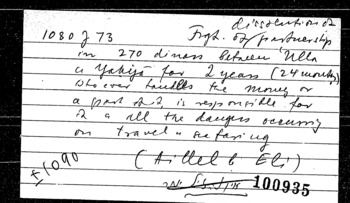 dissolution of
1080 J 73 Fragt. of partnership
in 270 dinars between 'Ulla
a Yahyā for 2 years (24 months)
Whoever handles the money or
a part of it is responsible for
it & all the dangers occurring
on travel & seafaring
(Hillel b Eli)
± 1090
100935